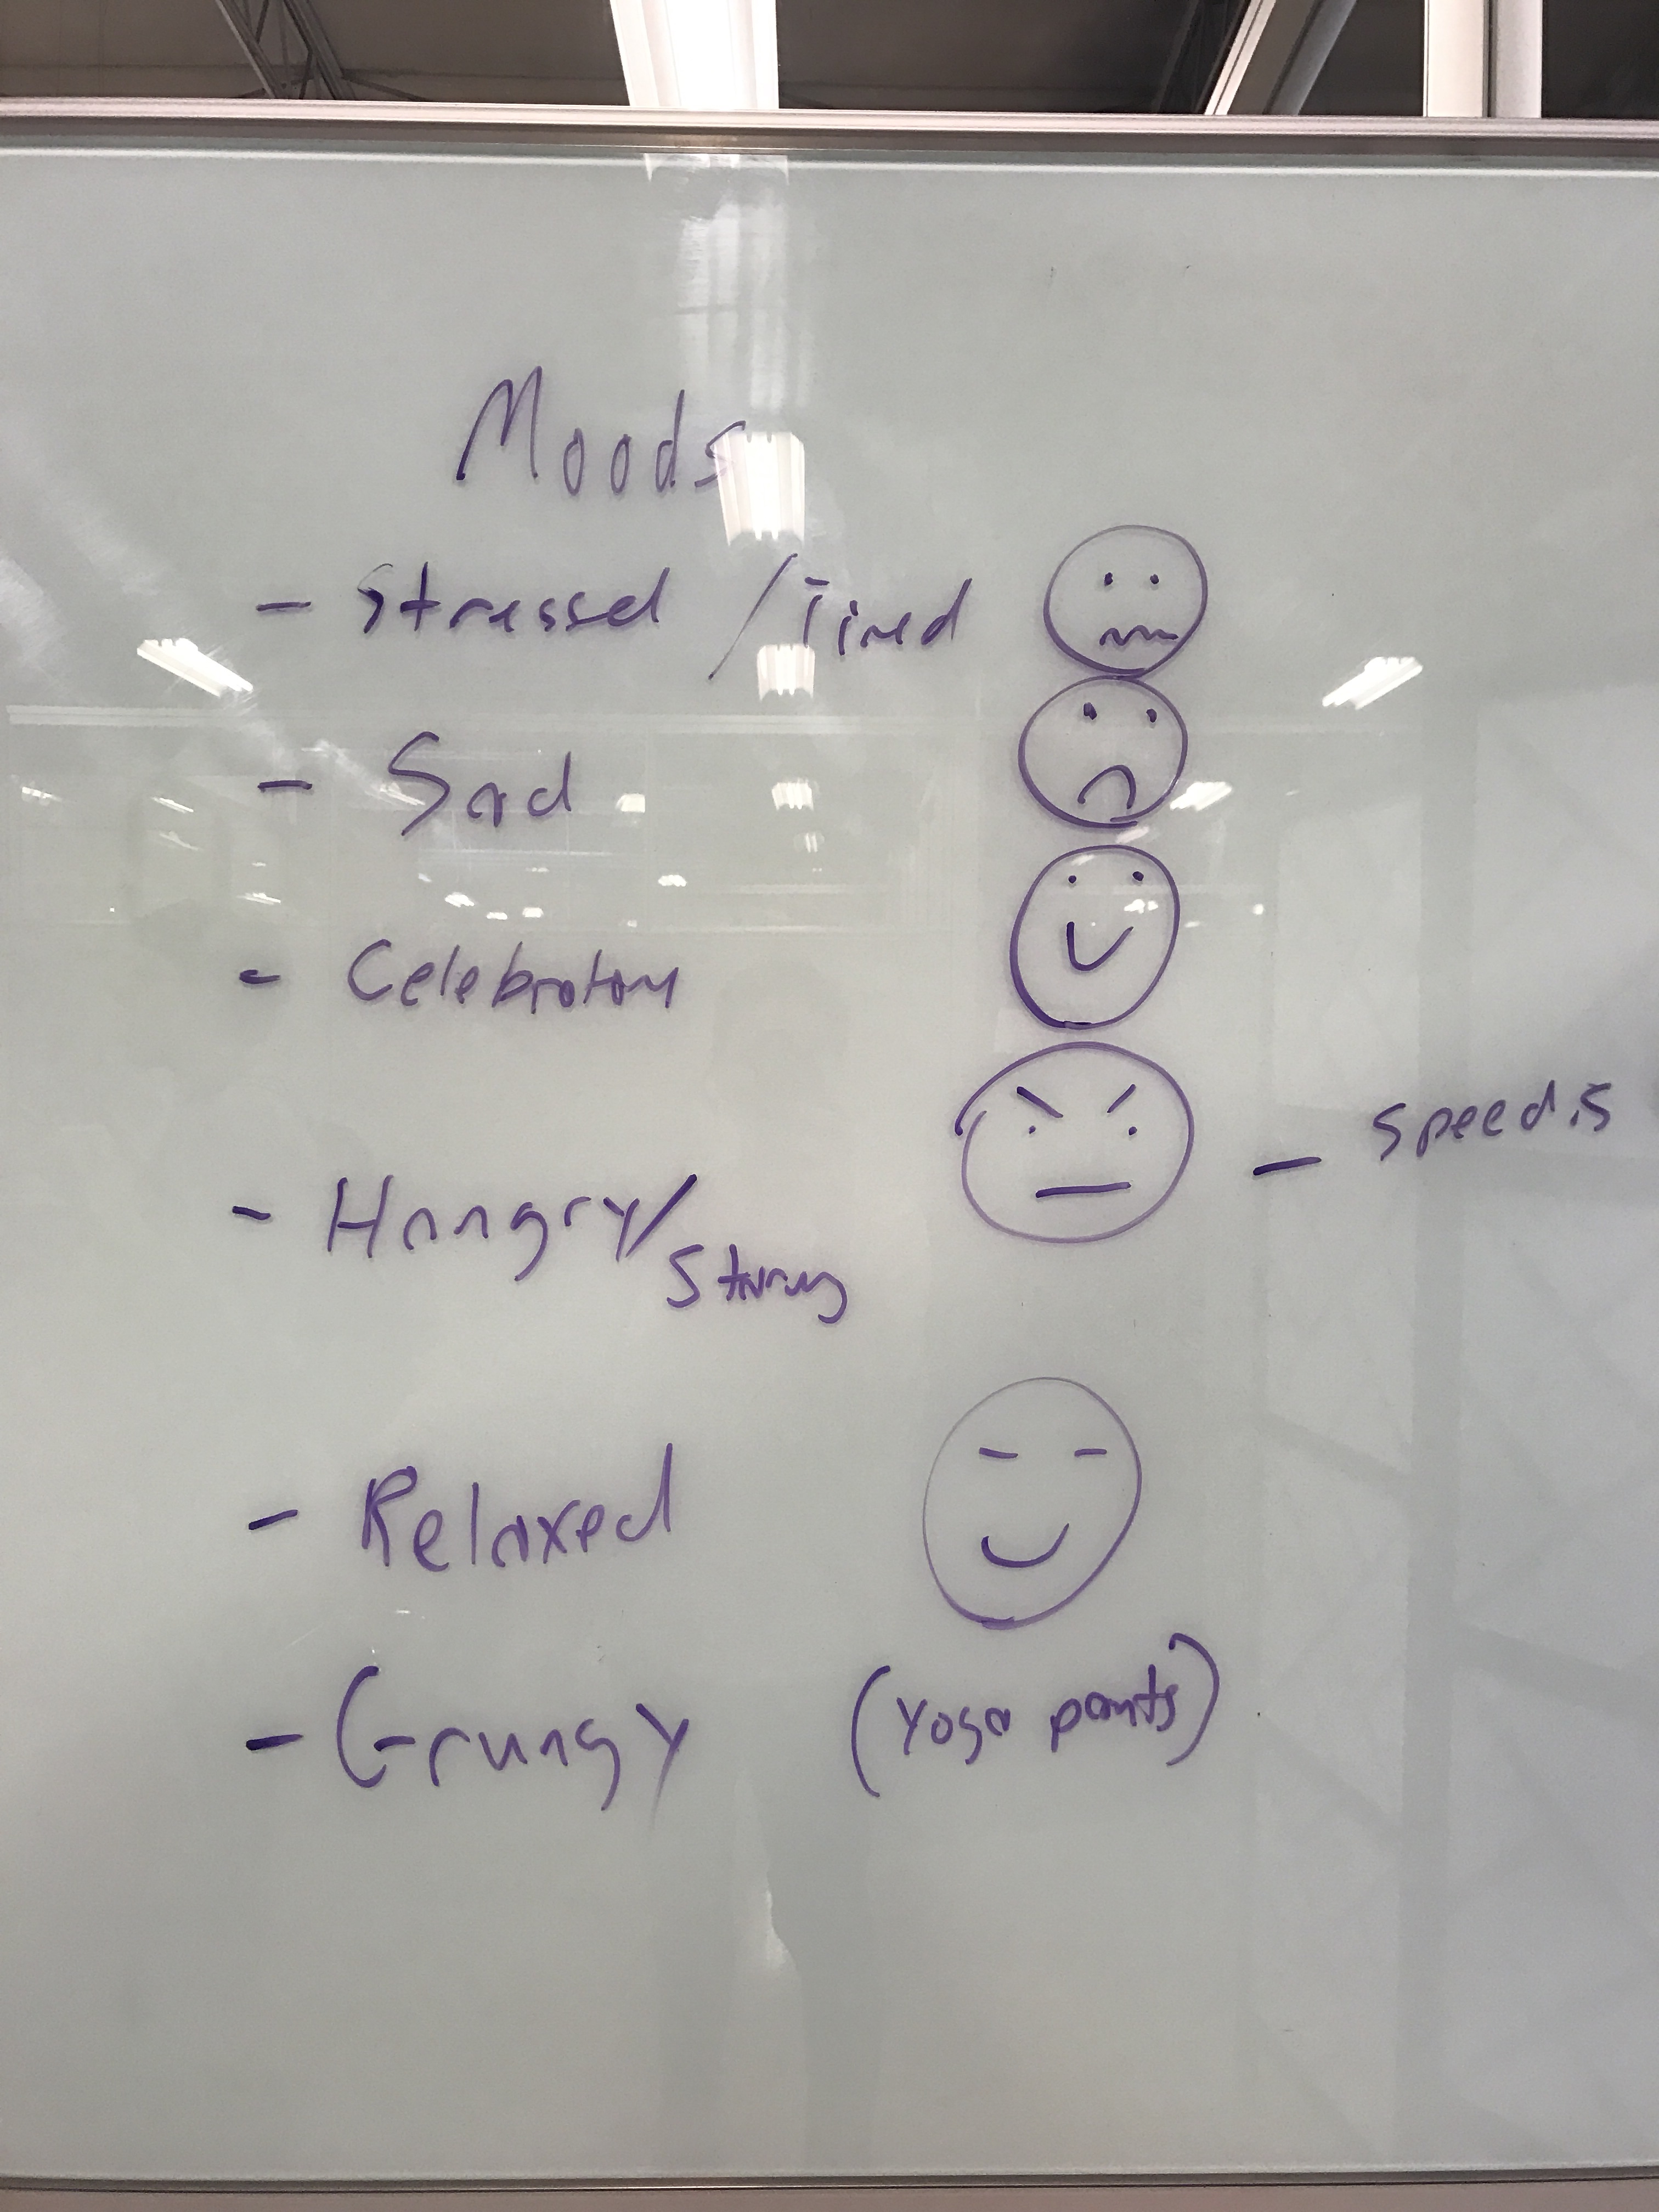 Moods
- Stressed / Tired
- Sad
- Celebratory
- Hangry/
Starving
- speed is
- Relaxed
- Grungy (Yoga pants)